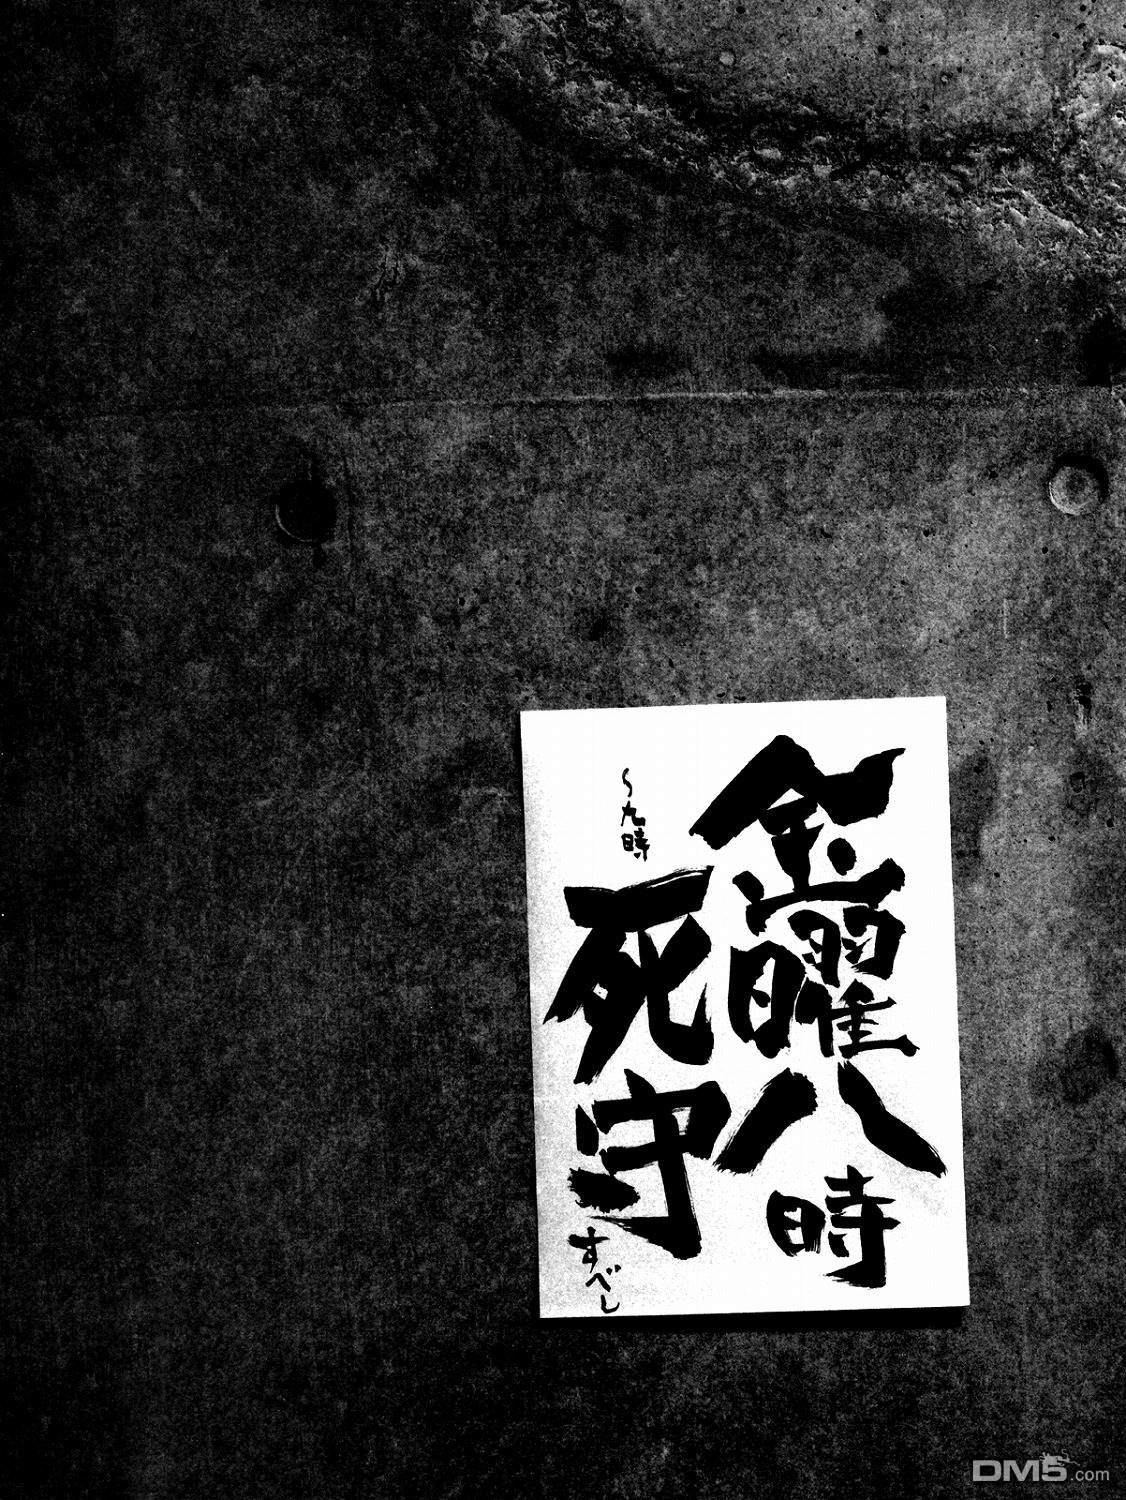 金曜八時
～九時
死守すべし
DM5.com